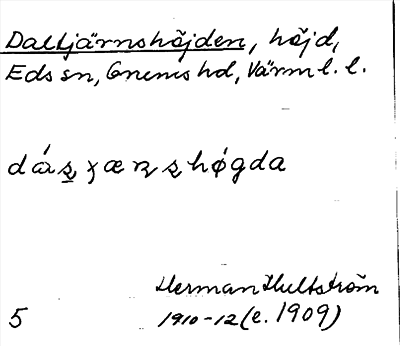 Daltjärnshöjden, höjd,
Eds sn, Grums hd, Värml. l.
dáʂ ꭓærʂhǿgda
Herman Hultström
5 1910-12 (e. 1909)